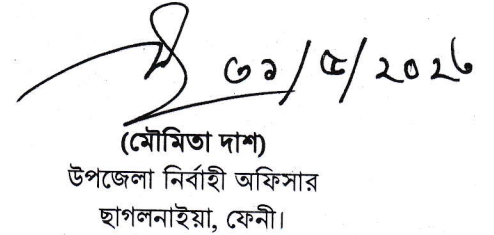 ৩১/৫/২০২৬
(মৌমিতা দাশ)
উপজেলা নির্বাহী অফিসার
ছাগলনাইয়া, ফেনী।